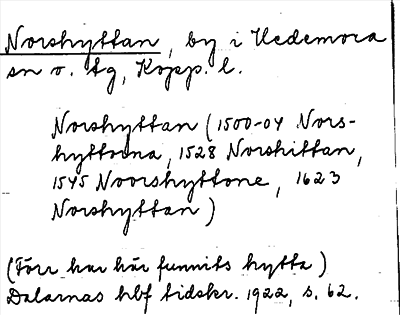 Norshyttan, by i Hedemora
sn o. tg, Kopp. l.
Norshyttan (1500-04 Nors-
hyttorna, 1528 Norshittan,
1545 Noorshyttone, 1623
Norshyttan)
(Förr har här funnits hytta)
Dalarnas hbf tidskr. 1922, s. 62.